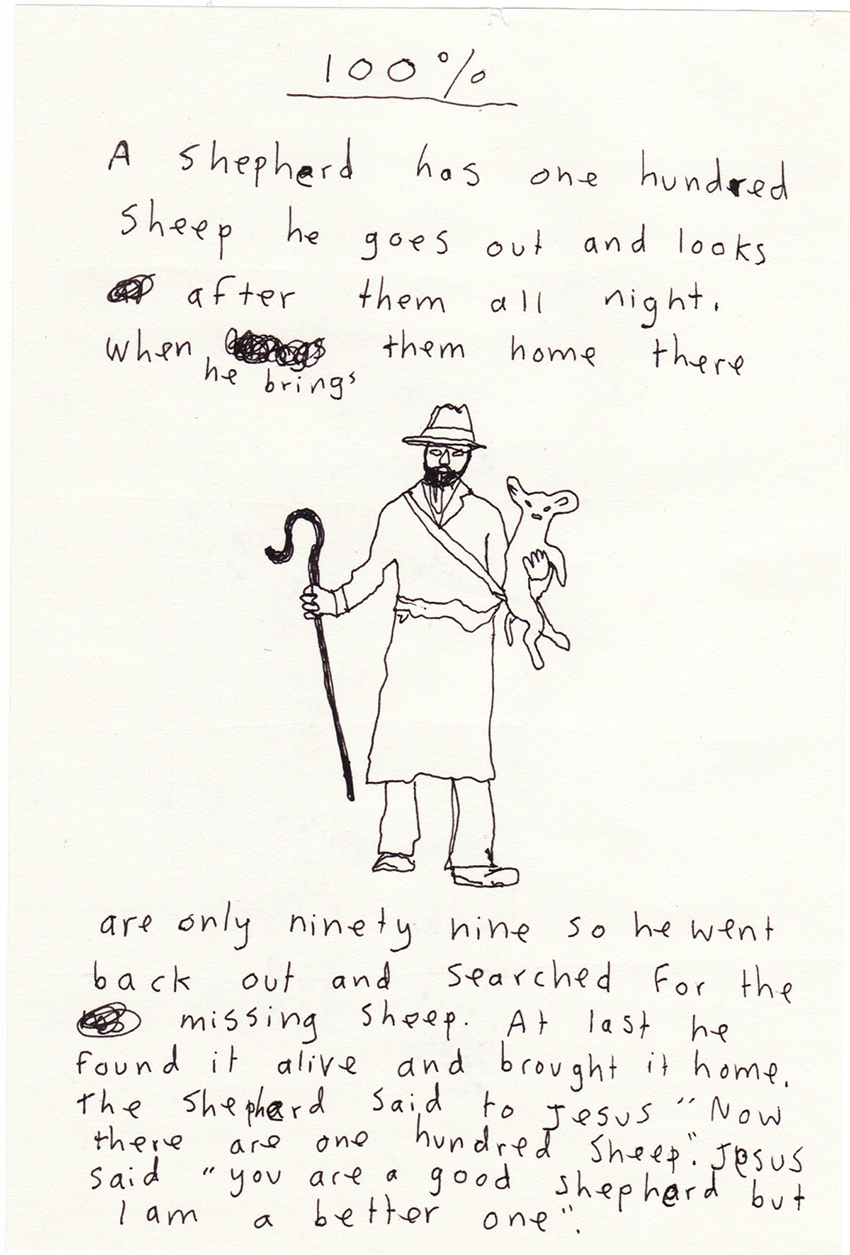 100%
A shepherd has one hundred
Sheep he goes out and looks
after them all night.
When them home there
he brings
are only ninety nine so he went
back out and searched for the
missing sheep. At last he
found it alive and brought it home.
The shepherd said to Jesus "Now
there are one hundred Sheep". Jesus
said "you are a good shepherd but
I am a better one".